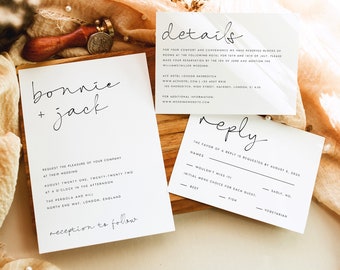 bonnie
+ jack
REQUEST THE PLEASURE OF YOUR COMPANY
AT THEIR WEDDING
AUGUST TWENTY ONE, TWENTY-TWENTY TWO
AT 4 O'CLOCK IN THE AFTERNOON
THE PENSOLD AND MILL
NORTH END WAY, LONDON, ENGLAND
reception to follow
details
FOR YOUR COMFORT AND CONVENIENCE WE HAVE RESERVED BLOCKS OF
ROOMS AT THE FOLLOWING HOTEL FOR 16TH AND 18TH OF JULY. PLEASE
MAKE YOUR RESERVATION BY THE 1ST OF JUNE AND MENTION THE
WEDDING
ACE HOTEL LONDON SHOREDITCH
LONDON
FOR ADDITIONAL INFORMATION
reply
THE FAVOR OF A REPLY IS REQUESTED BY AUGUST
NAMES
WOULDN'T MISS IT! SADLY, NO.
INITIAL MENU CHOICE FOR EACH GUEST.
BEEF FISH VEGETARIAN